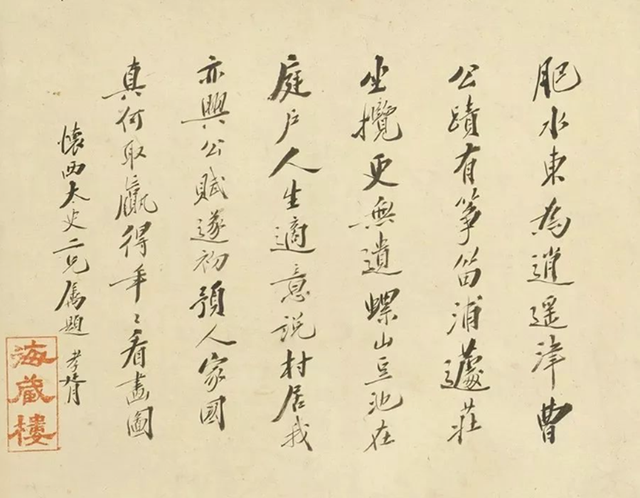 肥水東為逍遙津曹
公蹟有箏笛浦蘧莊
坐攬更無遺螺山豆池在
庭戶人生適意說村居我
亦興公賦遂初預人家國
真何取贏得年〻看畫圖
懷西太史二兄屬題 孝胥
海藏樓